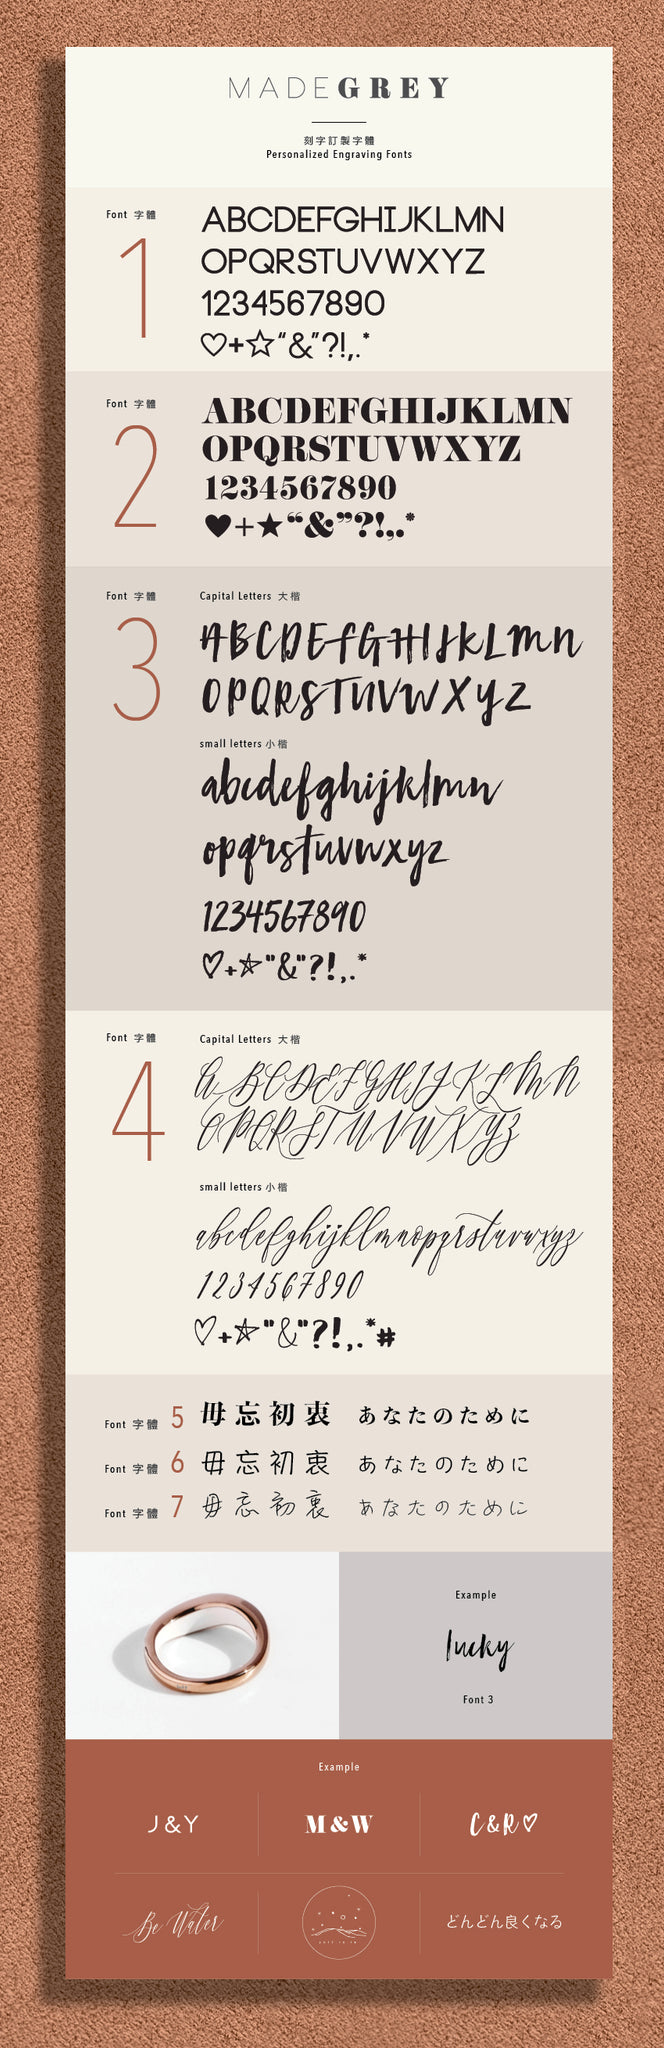 MADEGREY
刻字訂製字體
Personalized Engraving Fonts
Font 字體
1
ABCDEFGHIJKLMN
OPQRSTUVWXYZ
1234567890
♡+☆“&”?!,.*
Font 字體
2
ABCDEFGHIJKLMN
OPQRSTUVWXYZ
1234567890
♥+★“&”?!,.*
Font 字體
3
Capital Letters 大楷
ABCDEFGHIJKLMN
OPQRSTUVWXYZ
small letters 小楷
abcdefghijklmn
opqrstuvwxyz
1234567890
♡+☆"&"?!,.*
Font 字體
4
Capital Letters 大楷
ABCDEFGHIJKLMN
OPQRSTUVWXYZ
small letters 小楷
abcdefghijklmnopqrstuvwxyz
1234567890
♡+☆"&"?!,.*#
Font 字體 5 毋忘初衷 あなたのために
Font 字體 6 毋忘初衷 あなたのために
Font 字體 7 毋忘初衷 あなたのために
Example
lucky
Font 3
Example
J&Y
M&W
C&R♡
Be Water
どんどん良くなる